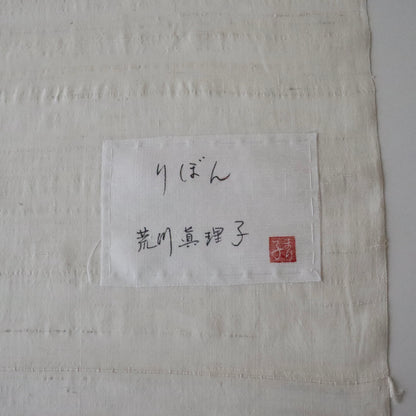 りぼん
荒川眞理子